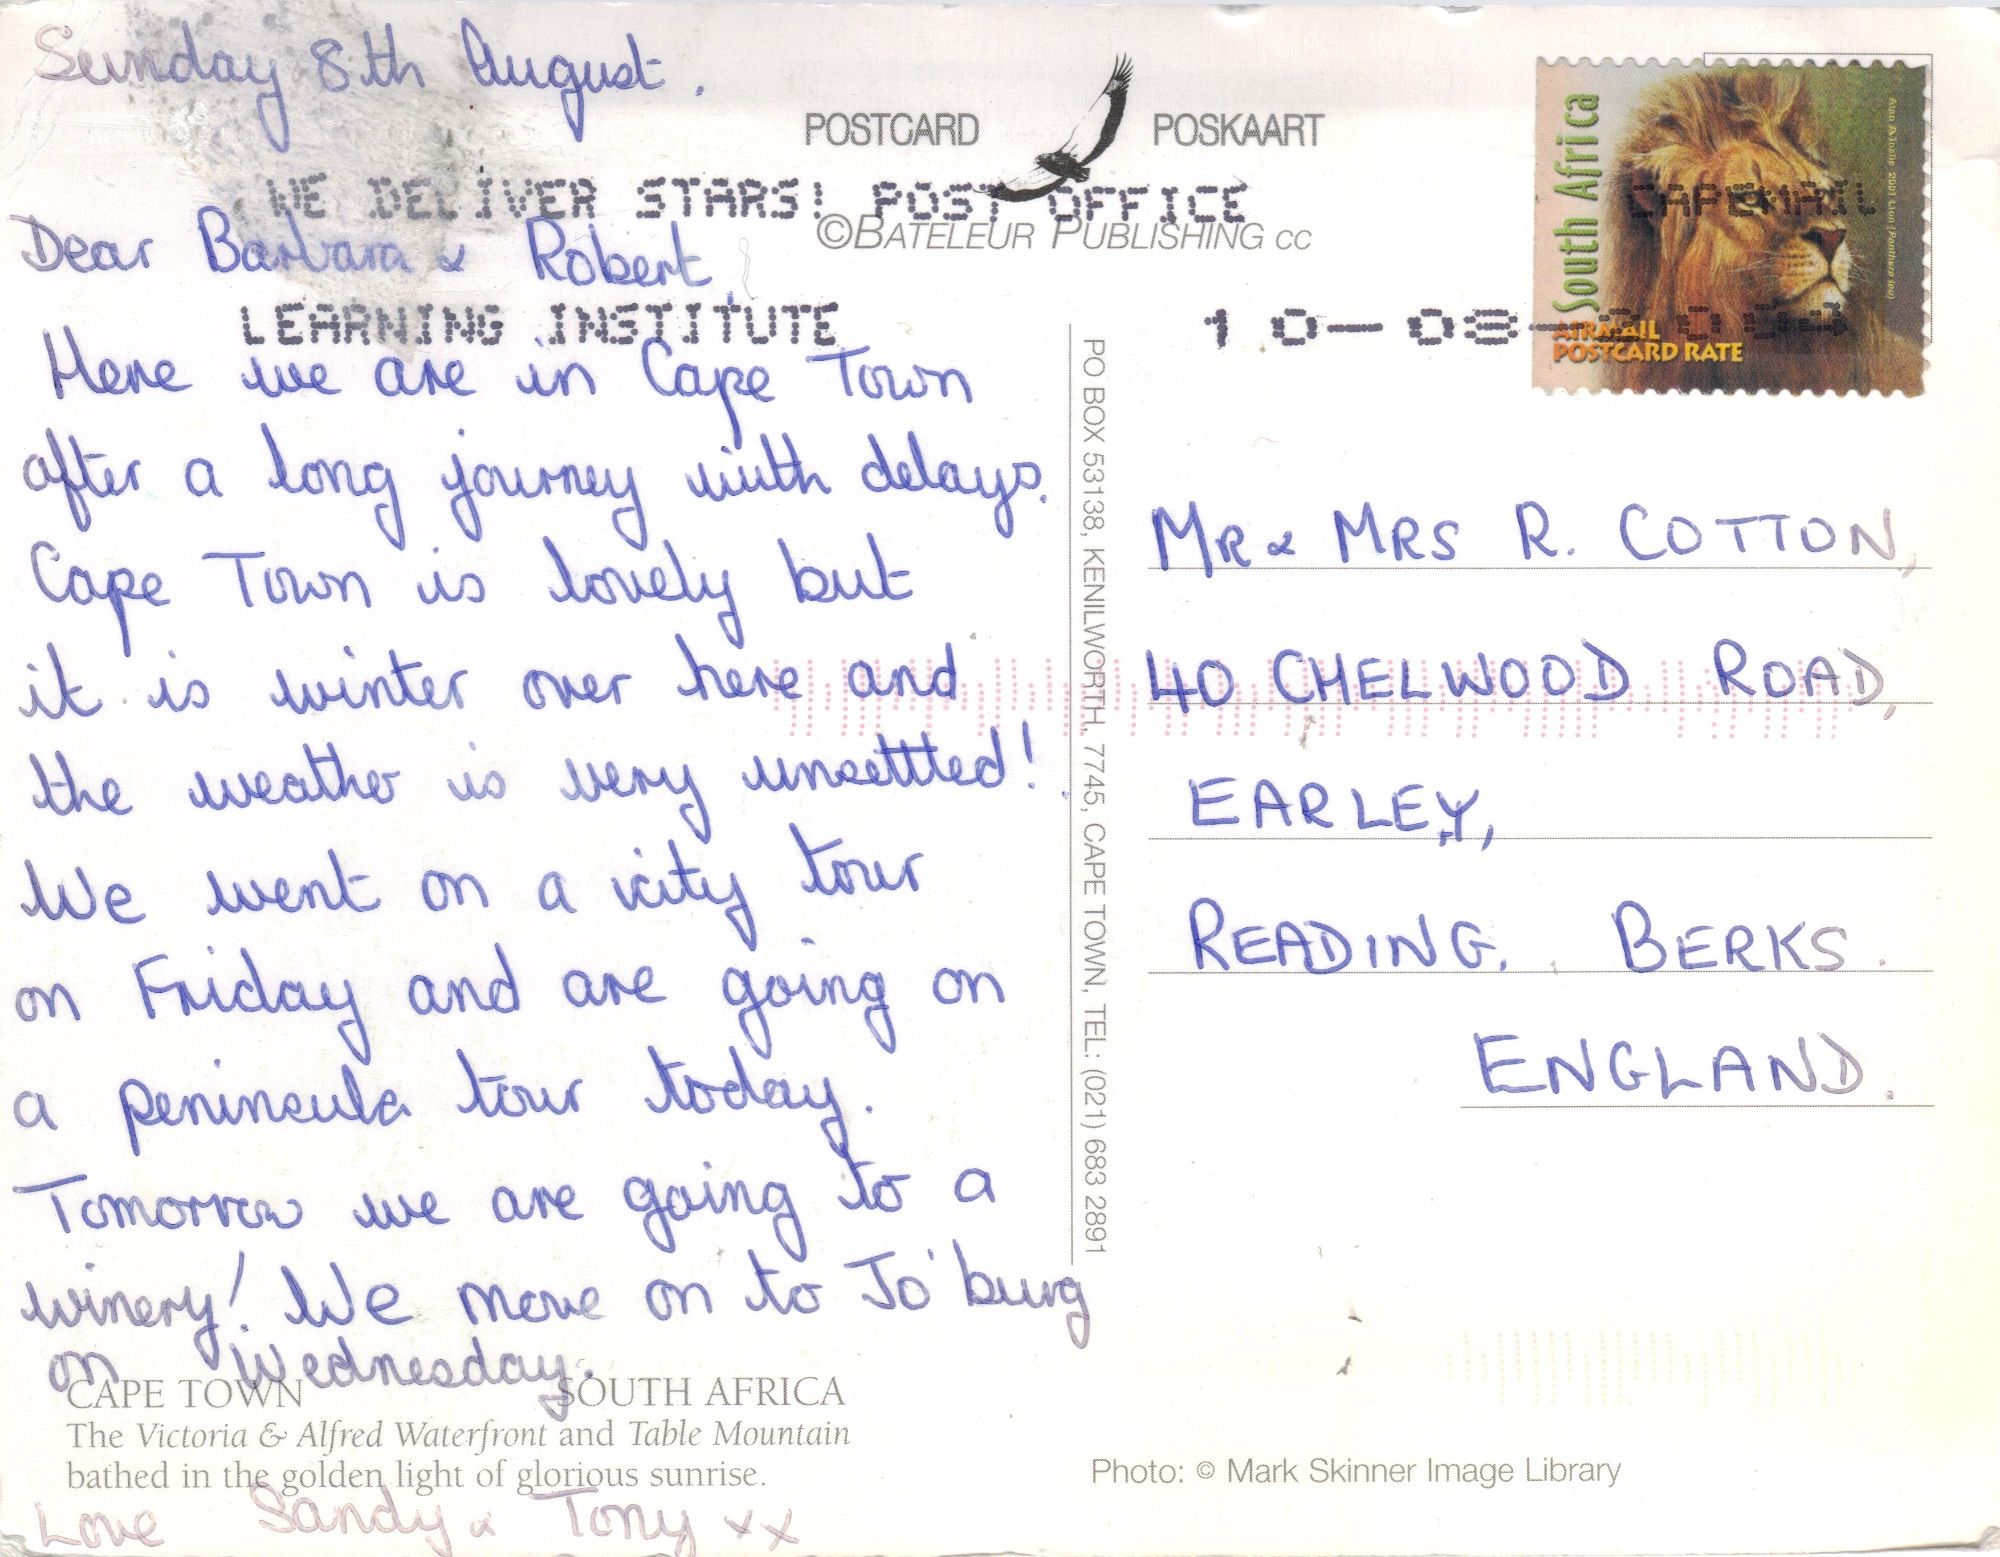 Sunday 8th August.
POSTCARD POSKAART
WE DELIVER STARS! POST OFFICE
©BATELEUR PUBLISHING CC
LEARNING INSTITUTE
CAPEMAIL
10-08-2004
South Africa
AIRMAIL
POSTCARD RATE
Dear Barbara & Robert,
Here we are in Cape Town
after a long journey with delays.
Cape Town is lovely but
it is winter over here and
the weather is very unsettled!
We went on a city tour
on Friday and are going on
a peninsula tour today.
Tomorrow we are going to a
winery! We move on to Jo'burg
on Wednesday.
CAPE TOWN SOUTH AFRICA
The Victoria & Alfred Waterfront and Table Mountain
bathed in the golden light of glorious sunrise.
Love Sandy & Tony xx
PO BOX 53138, KENILWORTH, 7745, CAPE TOWN, TEL: (021) 683 2891
MR & MRS R. COTTON,
40 CHELWOOD ROAD,
EARLEY,
READING. BERKS.
ENGLAND.
Photo: © Mark Skinner Image Library